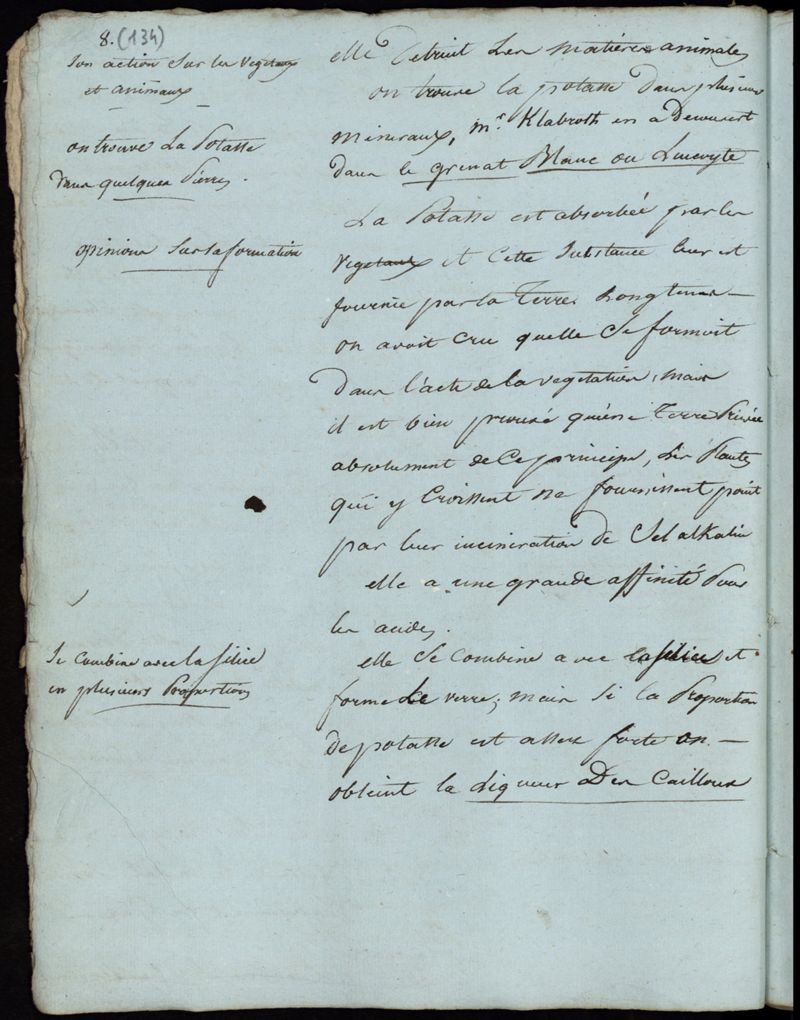 8. (134)
Son action sur les vegetaux
et animaux
on trouve La Potasse
dans quelques Pierres.
opinions sur sa formation
Se combine avec la silice
en plusieurs Proportions
elle detruit Les matieres animales
on trouve la potasse dans plusieurs
mineraux, mr Klabroth en a Decouvert
dans le grenat Blanc ou Leucyte
La Potasse est absorbée par les
vegetaux et cette substance leur est
fournie par la Terre. Longtems –
on avait cru quelle se formoit
Dans l'acte de la vegetation, mais
il est bien prouvé qu'une Terre Privée
absolument de ce principe, Les Plantes
qui y croissent ne fournissent point
par leur incineration de Sel alkalin
elle a une grande affinité Pour
les acides.
elle se combine avec la silice et
forme Le verre; mais si la Proportion
de potasse est assez forte on –
obteint la Liqueur Des Cailloux